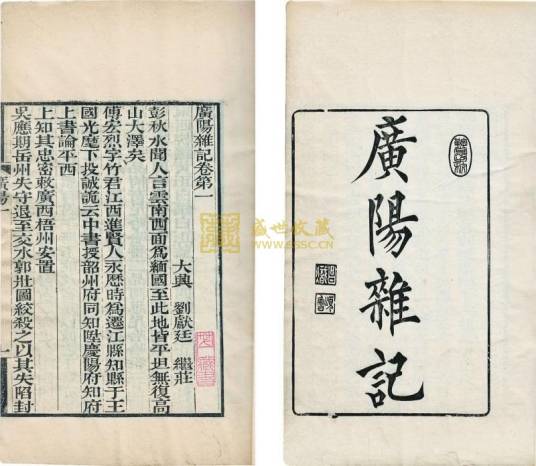 廣陽雜記
廣陽雜記卷第一
大興 劉獻廷 繼莊
彭秋水聞人言雲南西面爲緬國至此地皆平坦無復高
山大澤矣
傅宏烈字竹君江西進賢人永厯時爲遷江縣知縣于王
國光麾下投誠詭云中書授韶州府同知陞慶陽府知府
上書論平西
上知其忠密敕廣西梧州安置
吳應期岳州失守退至交水郭壯圖絞殺之以其失陷封
廣陽一
一
盛世收藏
WWW.SSSC.CN